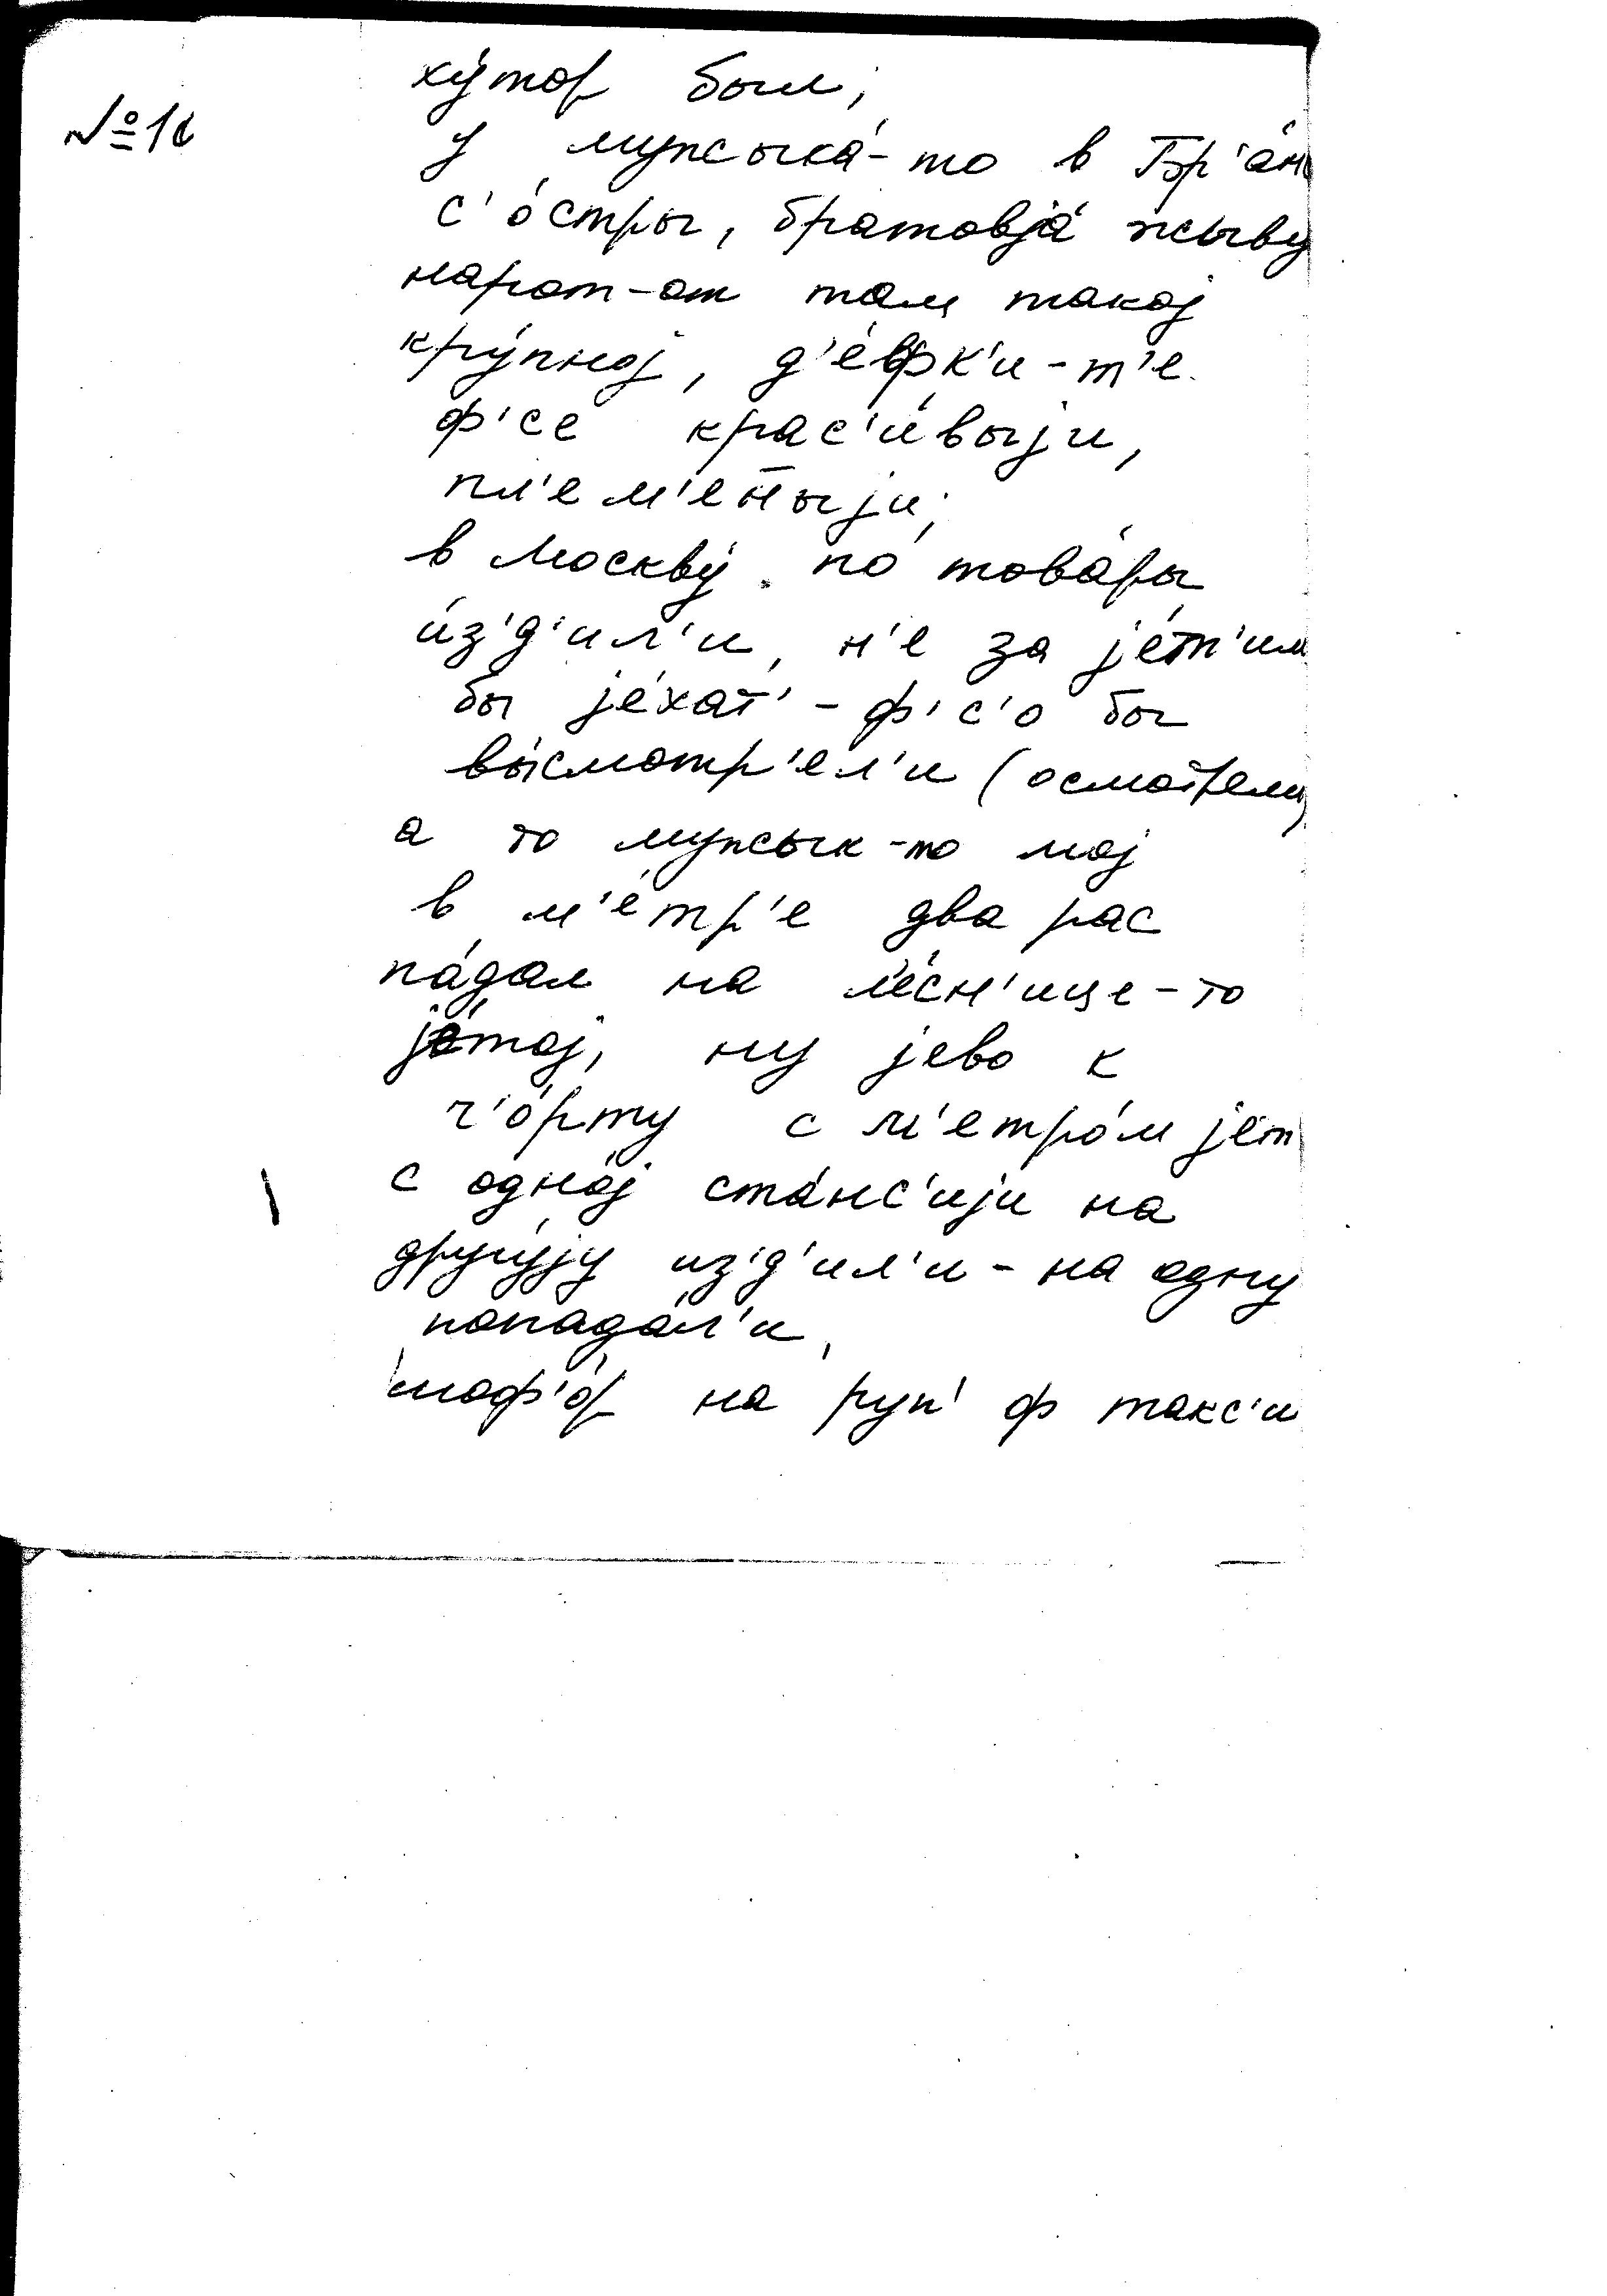 ху́тор был;
№1
у мужыка́-то в Бр'а́н
с'о́стры, братовjа́ жыву
народ-от там такоj
кру́пноj, д'е́фк'и-т'е
ф'се крас'и́выjи,
пл'ем'е́н̄ыjи;
в Москву́ по това́ры
и́з'д'ил'и, н'е за jе́т'им
бы jе́хат' - ф'с'о бы
вы́смотр'ел'и (осмотрели)
а то мужык-то моj
в м'е́тр'е два рас
па́дал на л'е́с'н'ице-то
jе́тоj, ну jево к
ч'о́рту с м'етро́м jет
с одно́j ста́нс'иjи на
другу́jу из'д'ил'и - на одну
попада́л'и,
шоф'о́р на руп' ф такс'и